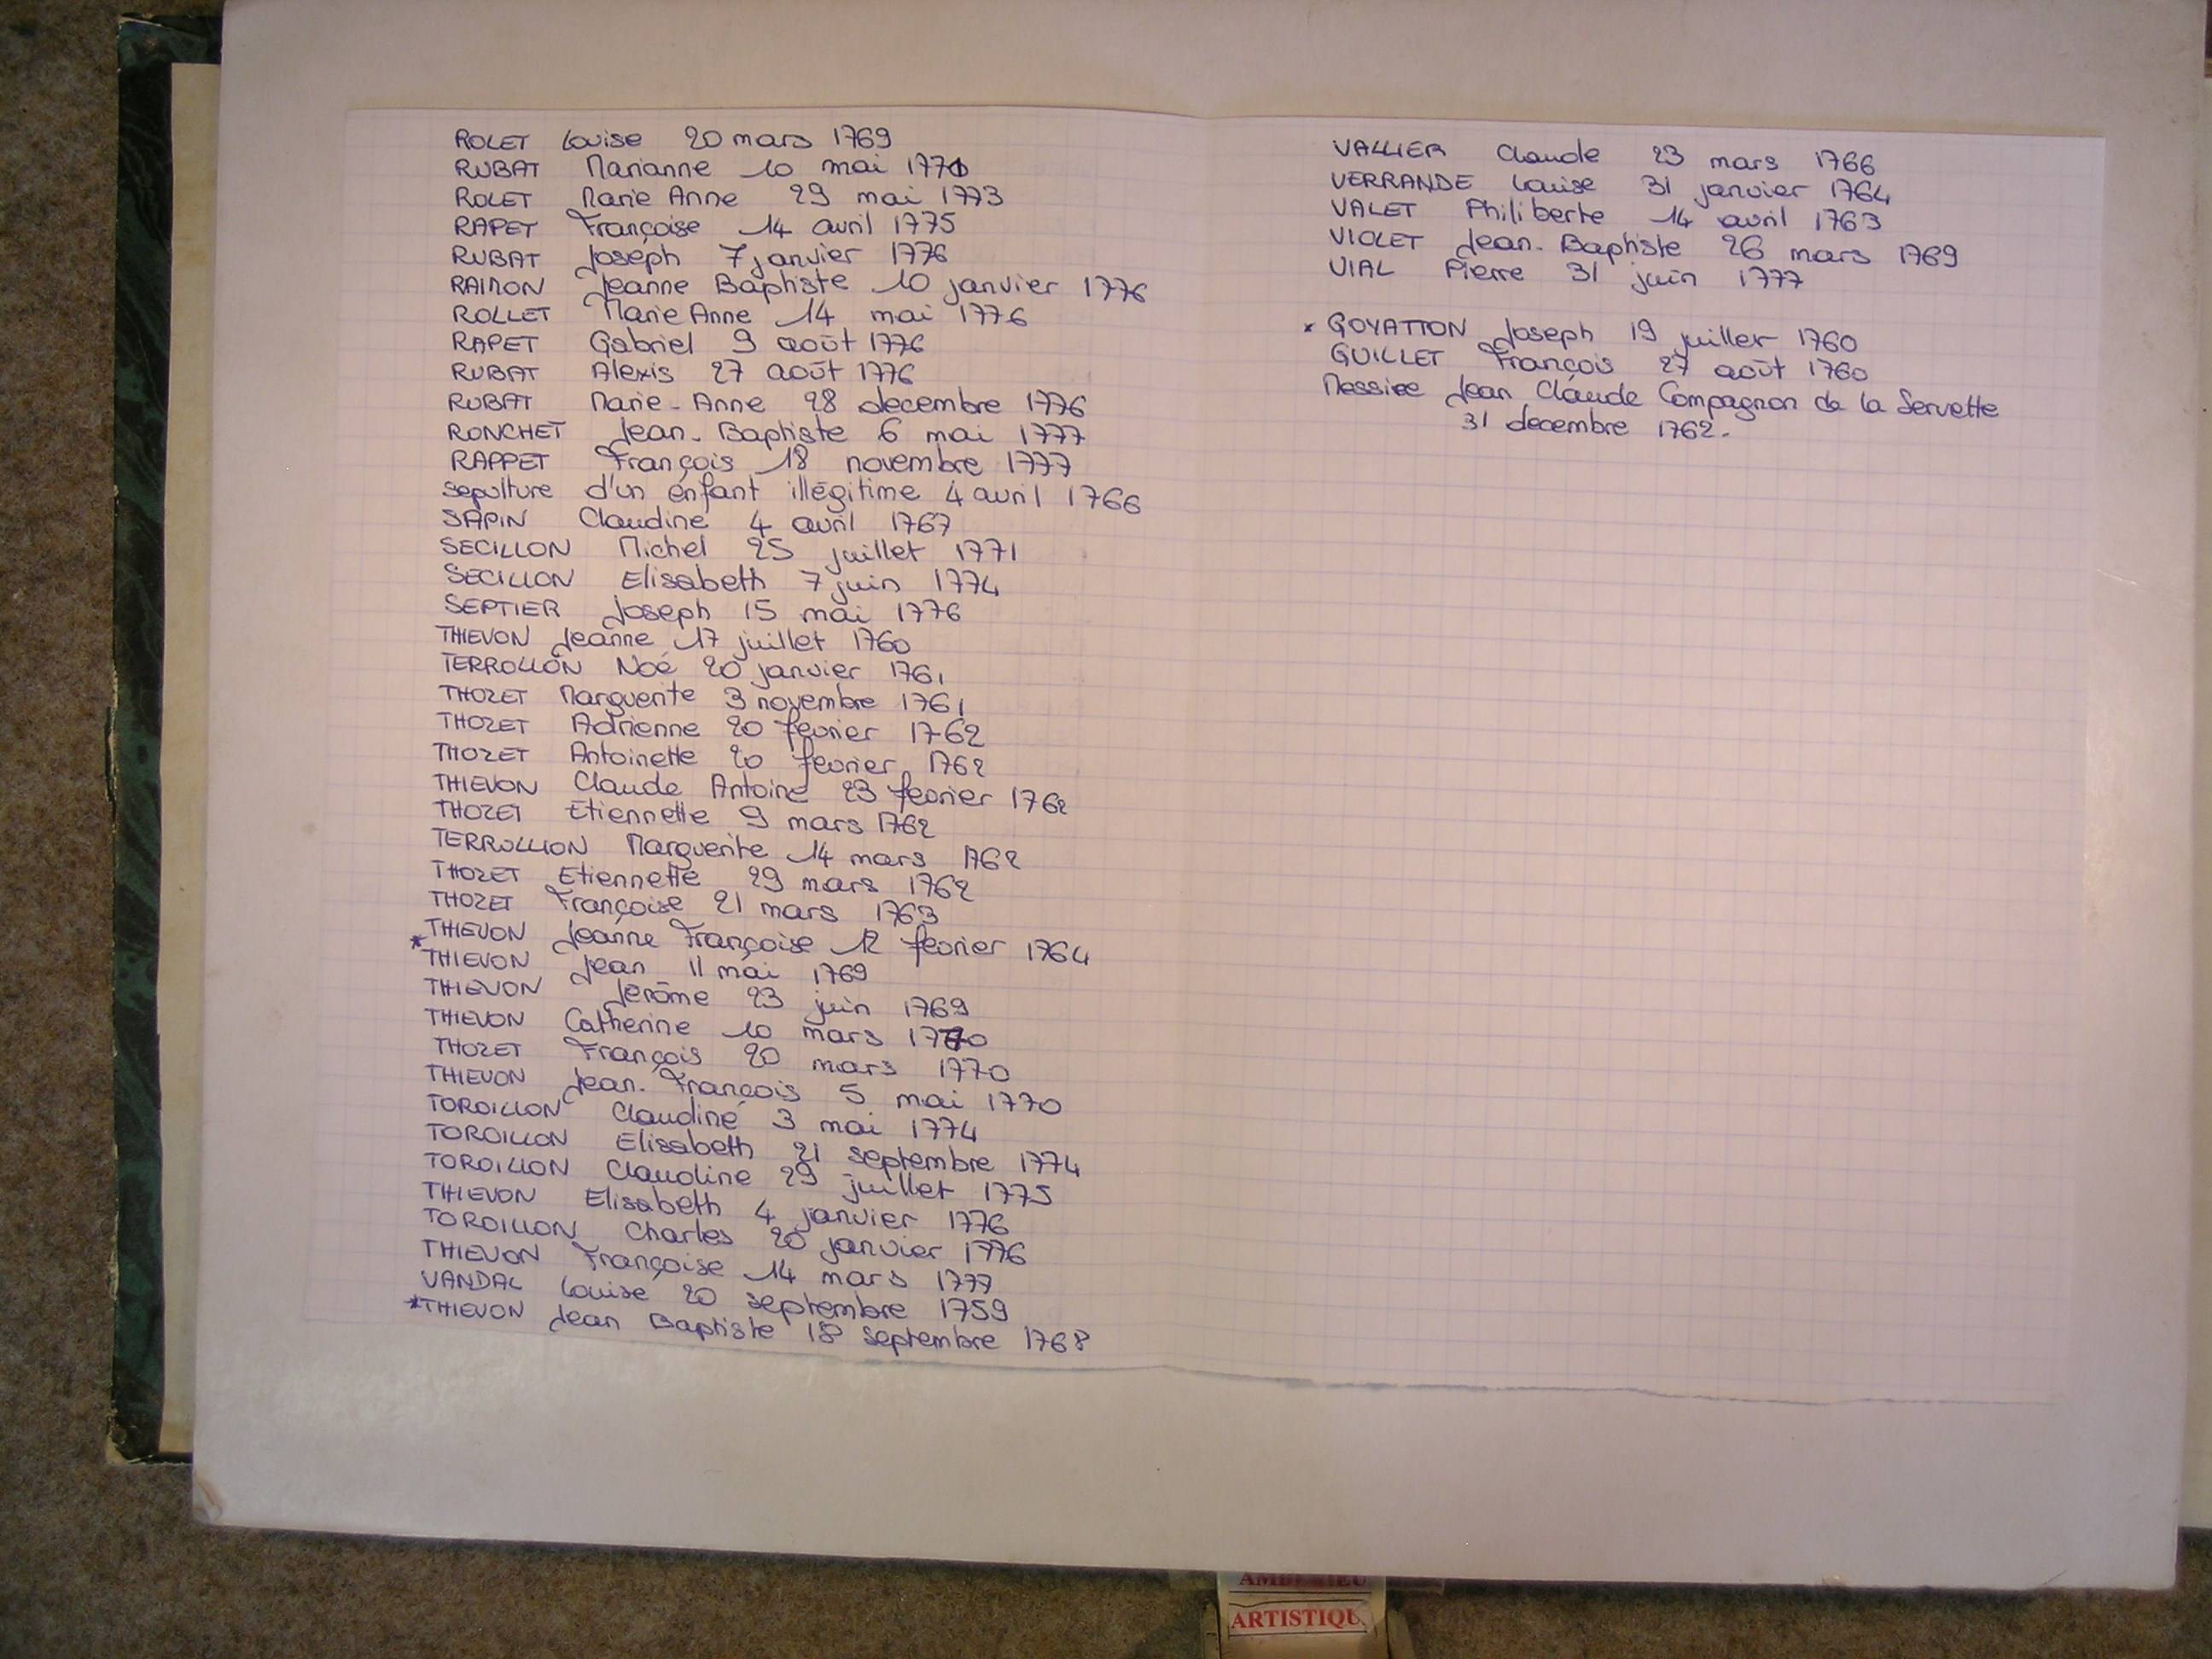 ROLET Louise 20 mars 1769
RUBAT Marianne 10 mai 1770
ROLET Marie Anne 29 mai 1773
RAPET Françoise 14 avril 1775
RUBAT Joseph 7 janvier 1776
RAIMON Jeanne Baptiste 10 janvier 1776
ROLLET Marie Anne 14 mai 1776
RAPET Gabriel 9 août 1776
RUBAT Alexis 27 août 1776
RUBAT Marie-Anne 28 decembre 1776
RONCHET Jean-Baptiste 6 mai 1777
RAPPET François 18 novembre 1777
sepulture d'un enfant illégitime 4 avril 1766
SAPIN Claudine 4 avril 1767
SECILLON Michel 25 juillet 1771
SECILLON Elisabeth 7 juin 1774
SEPTIER Joseph 15 mai 1776
THIEVON Jeanne 17 juillet 1760
TERROLLON Noé 20 janvier 1761
THOZET Marguerite 3 novembre 1761
THOZET Adrienne 20 fevrier 1762
THOZET Antoinette 20 fevrier 1762
THIEVON Claude Antoine 23 fevrier 1762
THOZET Etiennette 9 mars 1762
TERROLLION Marguerite 14 mars 1762
THOZET Etiennette 29 mars 1762
THOZET Françoise 21 mars 1763
THIEVON Jeanne Françoise 12 fevrier 1764
* THIEVON Jean 11 mai 1769
THIEVON Jerôme 23 juin 1769
THIEVON Catherine 10 mars 1770
THOZET François 20 mars 1770
THIEVON Jean-François 5 mai 1770
TOROILLON Claudine 3 mai 1774
TOROILLON Elisabeth 21 septembre 1774
TOROILLON Claudine 29 juillet 1775
THIEVON Elisabeth 4 janvier 1776
TOROILLON Charles 20 janvier 1776
THIEVON Françoise 14 mars 1777
VANDAL Louise 20 septembre 1759
* THIEVON Jean Baptiste 18 septembre 1768
VALLIER Claude 23 mars 1766
VERRANDE Louise 31 janvier 1764
VALET Philiberte 14 avril 1763
VIOLET Jean-Baptiste 26 mars 1769
VIAL Pierre 31 juin 1777
* GOYATTON Joseph 19 juillet 1760
GUILLET François 27 août 1760
Messire Jean Claude Compagnon de la Servette
31 decembre 1762.
ARTISTIQU